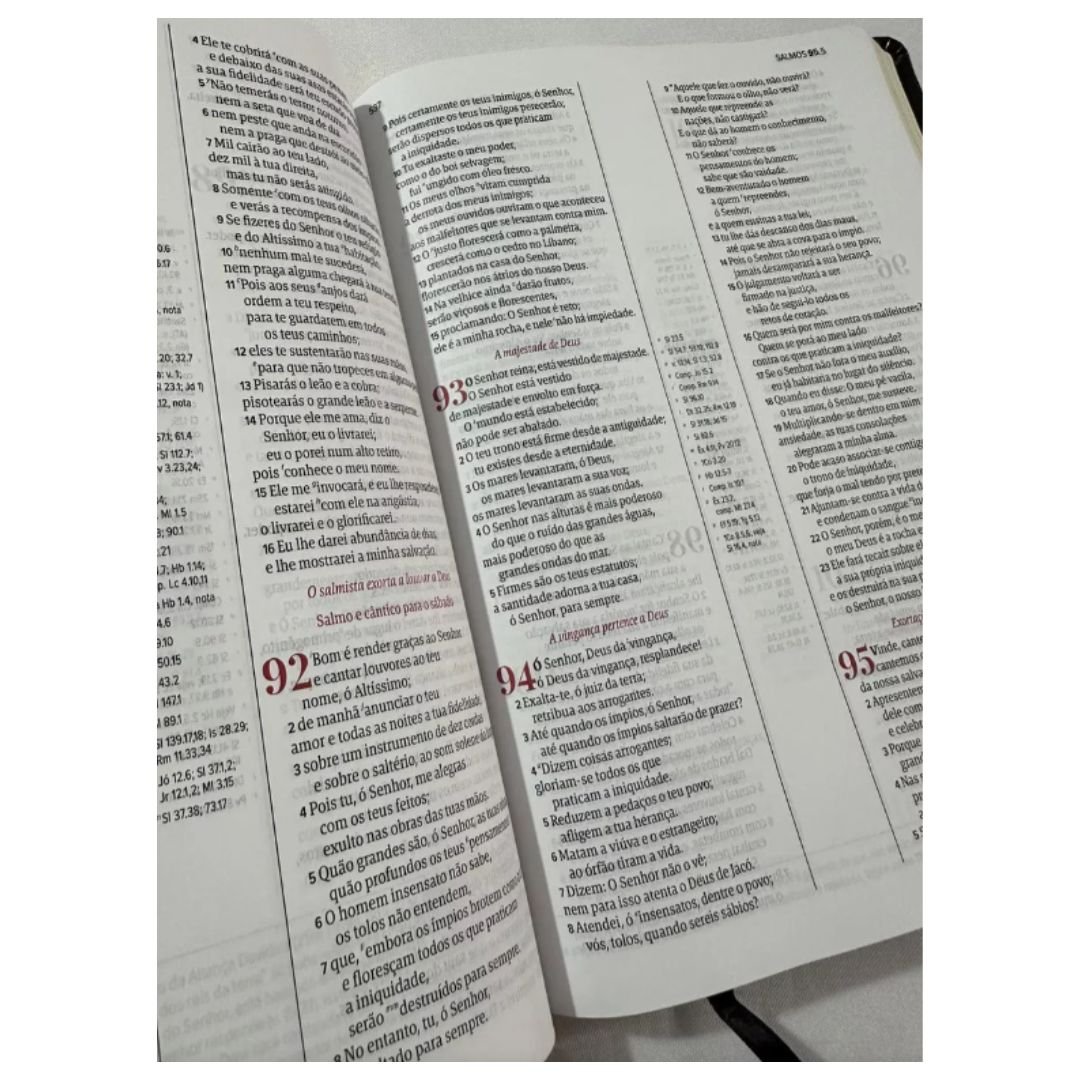 0.6
5.17
, nota
20; 32.7
a: v. 1;
l 23.1; Jd 1)
.12, nota
57.1; 61.4
Sl 112.7;
v 3.23,24;
Ml 1.5
; 90.1
.21
.7; Hb 1.14;
p. Lc 4.10,11
Hb 1.4, nota
4.6
9.10
50.15
43.2
147.1
l 89.1
Sl 139.17,18; Is 28.29;
Rm 11.33,34
Jó 12.6; Sl 37.1,2;
Jr 12.1,2; Ml 3.15
Sl 37.38; 73.17
4 Ele te cobrirá com as suas
e debaixo das suas asas
a sua fidelidade será teu escudo
5 Não temerás o terror noturno,
nem a seta que voa de dia
6 nem peste que anda na
nem a praga que destrói
7 Mil cairão ao teu lado,
dez mil à tua direita,
mas tu não serás atingido.
8 Somente com os teus olhos
e verás a recompensa dos ímpios.
9 Se fizeres do Senhor o teu
e do Altíssimo a tua habitação,
10 nenhum mal te sucederá,
nem praga alguma chegará à tua
11 Pois aos seus anjos dará
ordem a teu respeito,
para te guardarem em todos
os teus caminhos;
12 eles te sustentarão nas suas mãos,
para que não tropeces em
13 Pisarás o leão e a cobra;
pisotearás o grande leão e a serpente.
14 Porque ele me ama, diz o
Senhor, eu o livrarei;
eu o porei num alto retiro,
pois conhece o meu nome.
15 Ele me invocará, e eu lhe responderei
estarei com ele na angústia,
o livrarei e o glorificarei.
16 Eu lhe darei abundância de dias,
e lhe mostrarei a minha salvação.
O salmista exorta a louvar a Deus
Salmo e cântico para o sábado
92 Bom é render graças ao Senhor
e cantar louvores ao teu
nome, ó Altíssimo;
2 de manhã anunciar o teu
amor e todas as noites a tua fidelidade,
3 sobre um instrumento de dez cordas
e sobre o saltério, ao som solene da
4 Pois tu, ó Senhor, me alegras
com os teus feitos;
exulto nas obras das tuas mãos.
5 Quão grandes são, ó Senhor, as tuas
quão profundos os teus pensamentos
6 O homem insensato não sabe,
os tolos não entendem,
7 que, embora os ímpios brotem como
e floresçam todos os que praticam
a iniquidade,
serão destruídos para sempre.
8 No entanto, tu, ó Senhor,
ltado para sempre.
557
9 Pois certamente os teus inimigos, ó Senhor,
certamente os teus inimigos perecerão;
serão dispersos todos os que praticam
a iniquidade.
10 Tu exaltaste o meu poder,
como o do boi selvagem;
fui ungido com óleo fresco.
11 Os meus olhos viram cumprida
a derrota dos meus inimigos;
os meus ouvidos ouviram o que aconteceu
aos malfeitores que se levantam contra mim.
12 O justo florescerá como a palmeira,
crescerá como o cedro no Líbano;
13 plantados na casa do Senhor,
florescerão nos átrios do nosso Deus.
14 Na velhice ainda darão frutos,
serão viçosos e florescentes,
15 proclamando: O Senhor é reto;
ele é a minha rocha, e nele não há impiedade.
A majestade de Deus
93 O Senhor reina; está vestido de majestade.
O Senhor está vestido
de majestade e envolto em força.
O mundo está estabelecido;
não pode ser abalado.
2 O teu trono está firme desde a antiguidade;
tu existes desde a eternidade.
3 Os mares levantaram, ó Deus,
os mares levantaram a sua voz;
os mares levantaram as suas ondas.
4 O Senhor nas alturas é mais poderoso
do que o ruído das grandes águas,
mais poderoso do que as
grandes ondas do mar.
5 Firmes são os teus estatutos;
a santidade adorna a tua casa,
ó Senhor, para sempre.
A vingança pertence a Deus
94 Ó Senhor, Deus da vingança,
ó Deus da vingança, resplandece!
2 Exalta-te, ó juiz da terra;
retribua aos arrogantes.
3 Até quando os ímpios, ó Senhor,
até quando os ímpios saltarão de prazer?
4 Dizem coisas arrogantes;
gloriam-se todos os que
praticam a iniquidade.
5 Reduzem a pedaços o teu povo;
afligem a tua herança.
6 Matam a viúva e o estrangeiro;
ao órfão tiram a vida.
7 Dizem: O Senhor não o vê;
nem para isso atenta o Deus de Jacó.
8 Atendei, ó insensatos, dentre o povo;
vós, tolos, quando sereis sábios?
Sl 23.5
Sl 54.7; 59.10; 112.8
Comp. Is 15.2
Comp. Rm 9.14
Sl 96.10
Sl 31.18; 36.15
Sl 82.6
1Co 3.20
Hb 12.5-7
Comp. Is 10.1
Êx 23.7,
comp. Ml 27.4
Sl 16.4, nota
SALMOS 95.5
9 Aquele que fez o ouvido, não ouvirá?
E o que formou o olho, não verá?
10 Aquele que repreende as
nações, não castigará?
E o que dá ao homem o conhecimento,
não saberá?
11 O Senhor conhece os
pensamentos do homem;
sabe que são vaidade.
12 Bem-aventurado o homem
a quem repreendes,
ó Senhor,
e a quem ensinas a tua lei;
13 tu lhe dás descanso dos dias maus,
até que se abra a cova para o ímpio.
14 Pois o Senhor não rejeitará o seu povo;
jamais desamparará a sua herança.
15 O julgamento voltará a ser
firmado na justiça,
e hão de segui-lo todos os
retos de coração.
16 Quem será por mim contra os malfeitores?
Quem se porá ao meu lado
contra os que praticam a iniquidade?
17 Se o Senhor não fora o meu auxílio,
eu já habitaria no lugar do silêncio.
18 Quando eu disse: O meu pé vacila,
o teu amor, ó Senhor, me susteve.
19 Multiplicando-se dentro em mim
ansiedade, as tuas consolações
alegraram a minha alma.
20 Pode acaso associar-se contigo
o trono de iniquidade,
que forja o mal tendo por
21 Ajuntam-se contra a vida d
e condenam o sangue
22 O Senhor, porém, é o me
o meu Deus é a rocha e
23 Ele fará recair sobre el
a sua própria iniquid
e os destruirá na sua p
o Senhor, o nosso
Exortaç
95 Vinde, cante
cantemos
da nossa salva
2 Apresentem
dele com
e celebr
3 Porque
gran
4 Nas
5 S